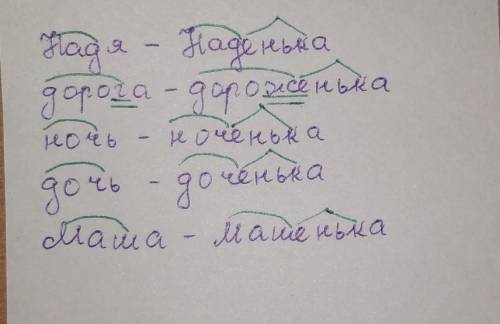 Надя - Наденька
дорога - дороженька
ночь - ноченька
дочь - доченька
Маша - Машенька